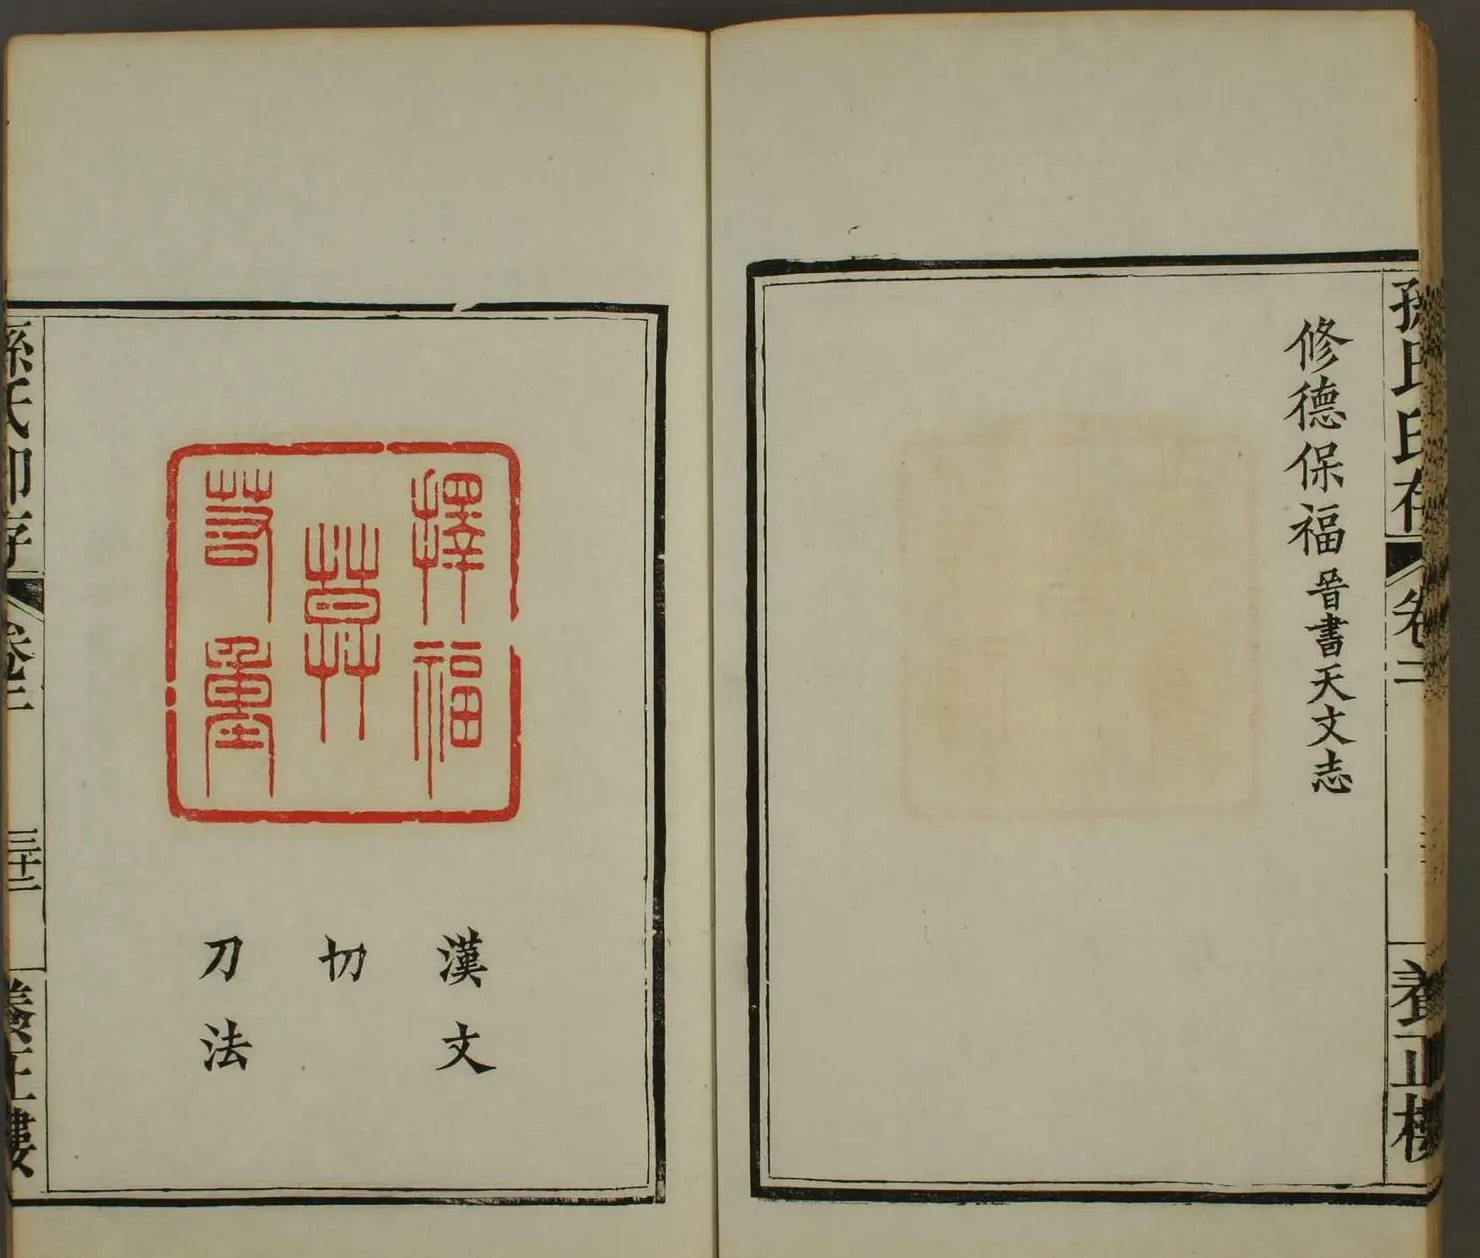 孫氏印存
卷二
養正樓
修德保福 晉書天文志
擇福
莫
若重
漢文
切
刀法
孫氏印存
卷二
三十二
養正樓